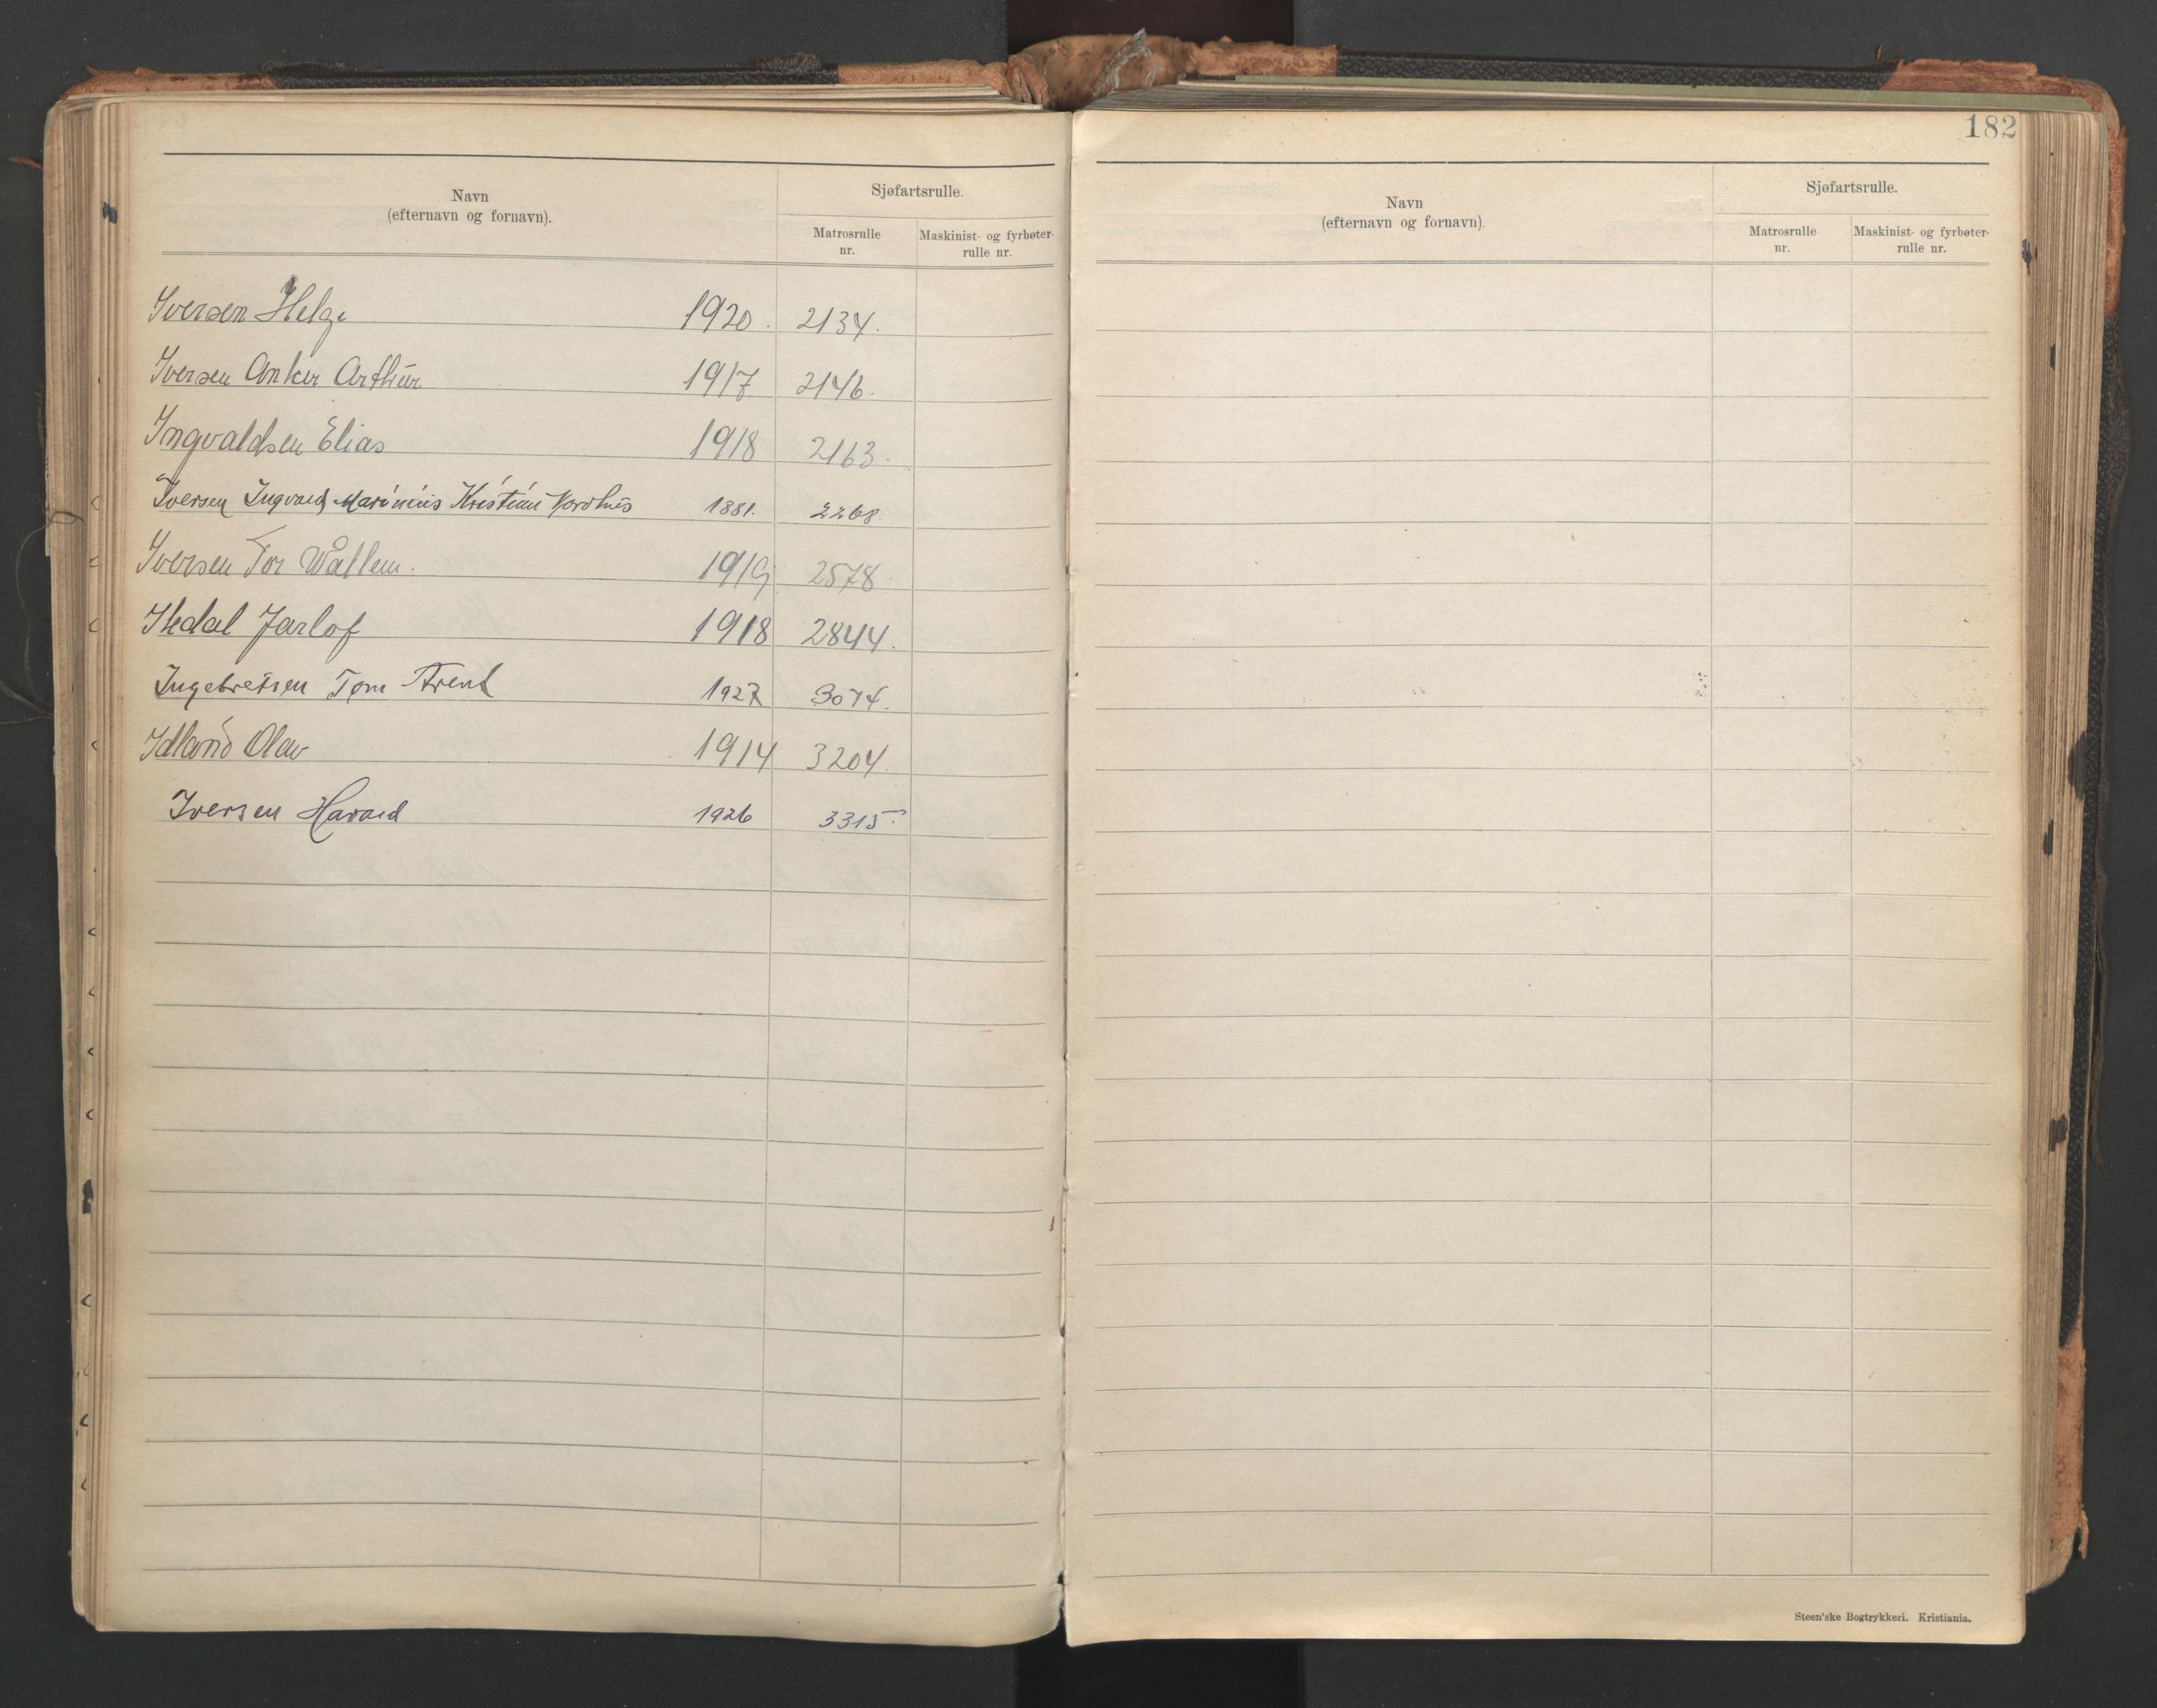 Navn
(efternavn og fornavn).
Sjøfartsrulle.
Matrosrulle
nr.
Maskinist- og fyrbøter-
rulle nr.
Iversen Helge 1920. 2134.
Iversen Anker Arthur 1917 2146.
Ingvaldsen Elias 1918 2163.
Iversen Ingvald Marinius Kristian Nordhus 1881. 2268.
Iversen Tor Wallem. 1919 2578.
Ikdal Jarlof 1918 2844.
Ingebretsen Tom Arent 1927 3074.
Idland Olav 1914 3204.
Iversen Harald 1926 3315.
182
Navn
(efternavn og fornavn).
Sjøfartsrulle.
Matrosrulle
nr.
Maskinist- og fyrbøter-
rulle nr.
Steen'ske Bogtrykkeri. Kristiania.